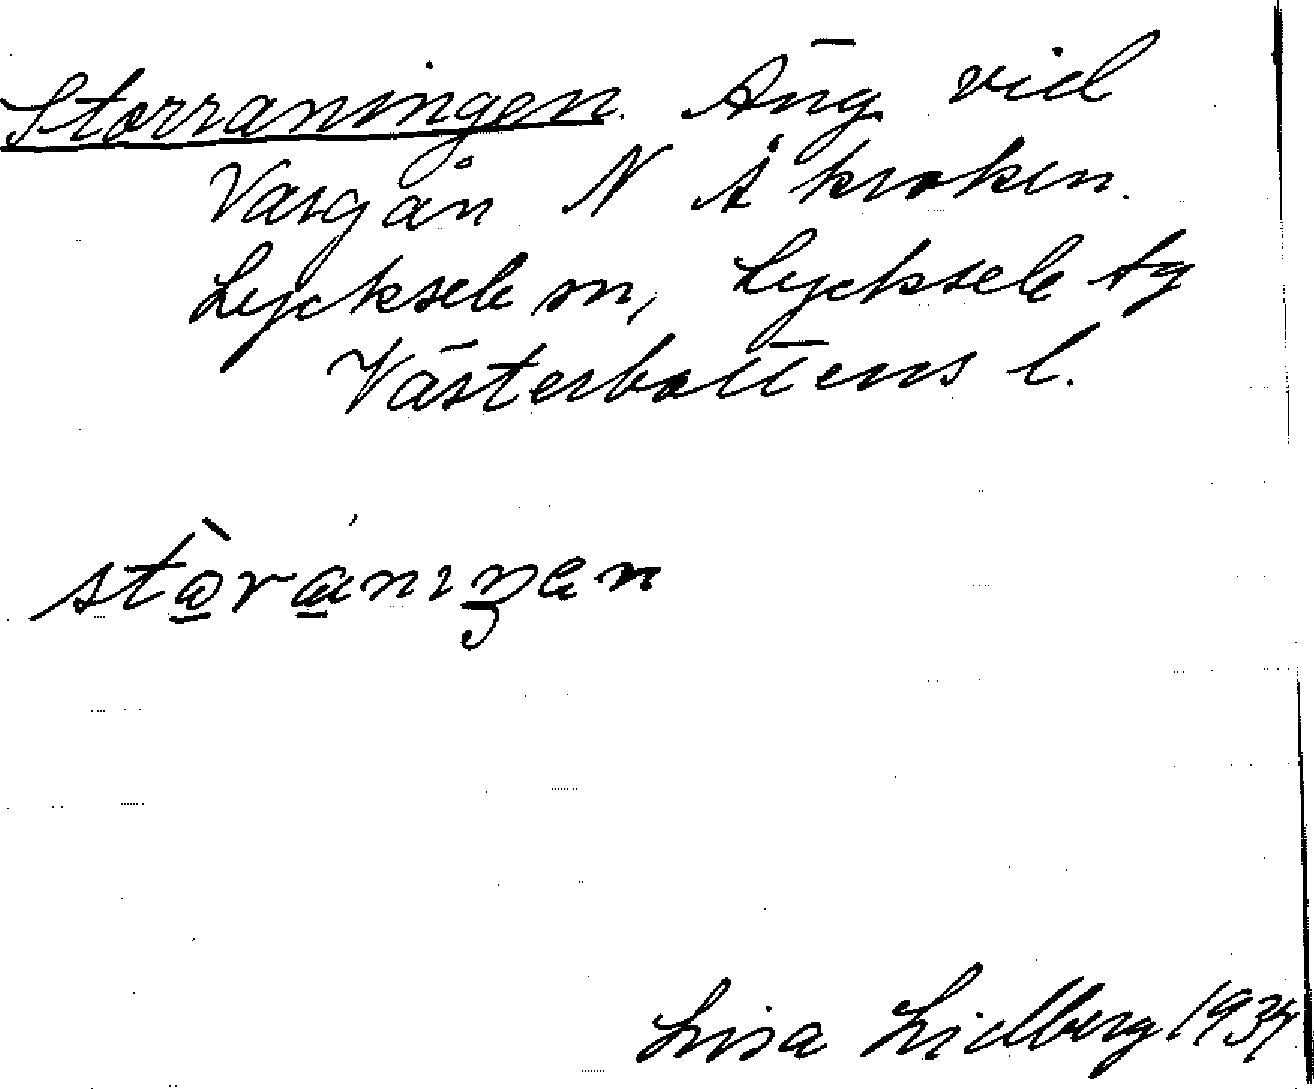 Storraningen. Äng vid
Vargån N Åkroken.
Lycksele sn, Lycksele tg
Västerbottens l.
Lisa Lidberg